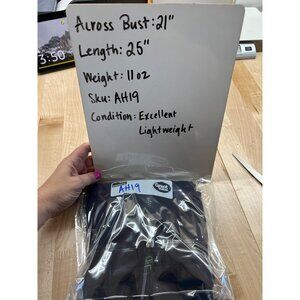 Across Bust: 21"
Length: 25"
Weight: 11 oz
Sku: AH19
Condition: Excellent
Lightweight
3:50
AH19